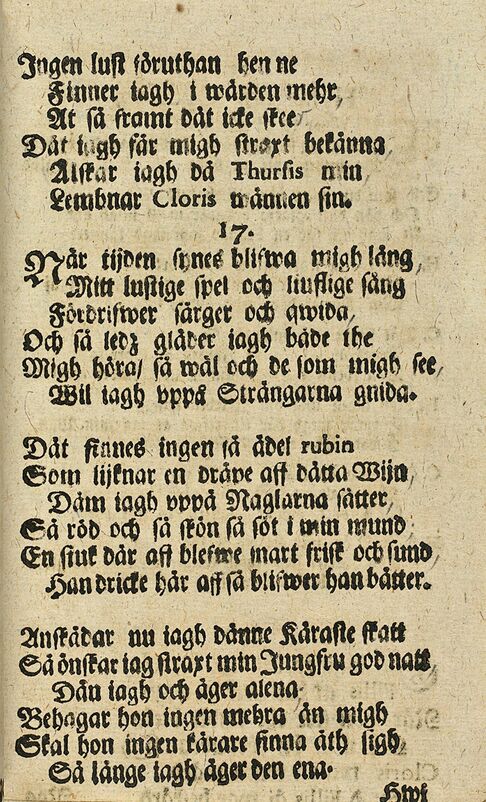 Ingen lust föruthan henne
Finner iagh i wården mehr,
At så framt dåt icke skee
Dåt iagh får migh straxt bekånna
Ålskar iagh då Thursis min
Lembnar Cloris wånnen sin.
17.
Når tijden synes blifwa migh lång,
Mitt lustige spel och liuflige sång
Fördrifwer sårger och qwida,
Och så ledz glåder iagh både the
Migh höra/ så wål och de som migh see,
Wil iagh vppå Strångarna gnida.
Dåt finnes ingen så ådel rubin
Som lijknar en dråpe aff dåtta Wijn,
Dåm iagh vppå Naglarna såtter,
Så röd och så skön så söt i min mund,
En siuk dår aff blefwe mart frisk och sund,
Han dricke hår aff så blifwer han båtter.
Anskådar nu iagh dånne Kåraste skatt
Så önskar iag straxt min Jungfru god natt,
Dån iagh och åger alena.
Behagar hon ingen mehra ån migh
Skal hon ingen kårare finna åth sigh,
Så långe iagh åger den ena.
Hwi